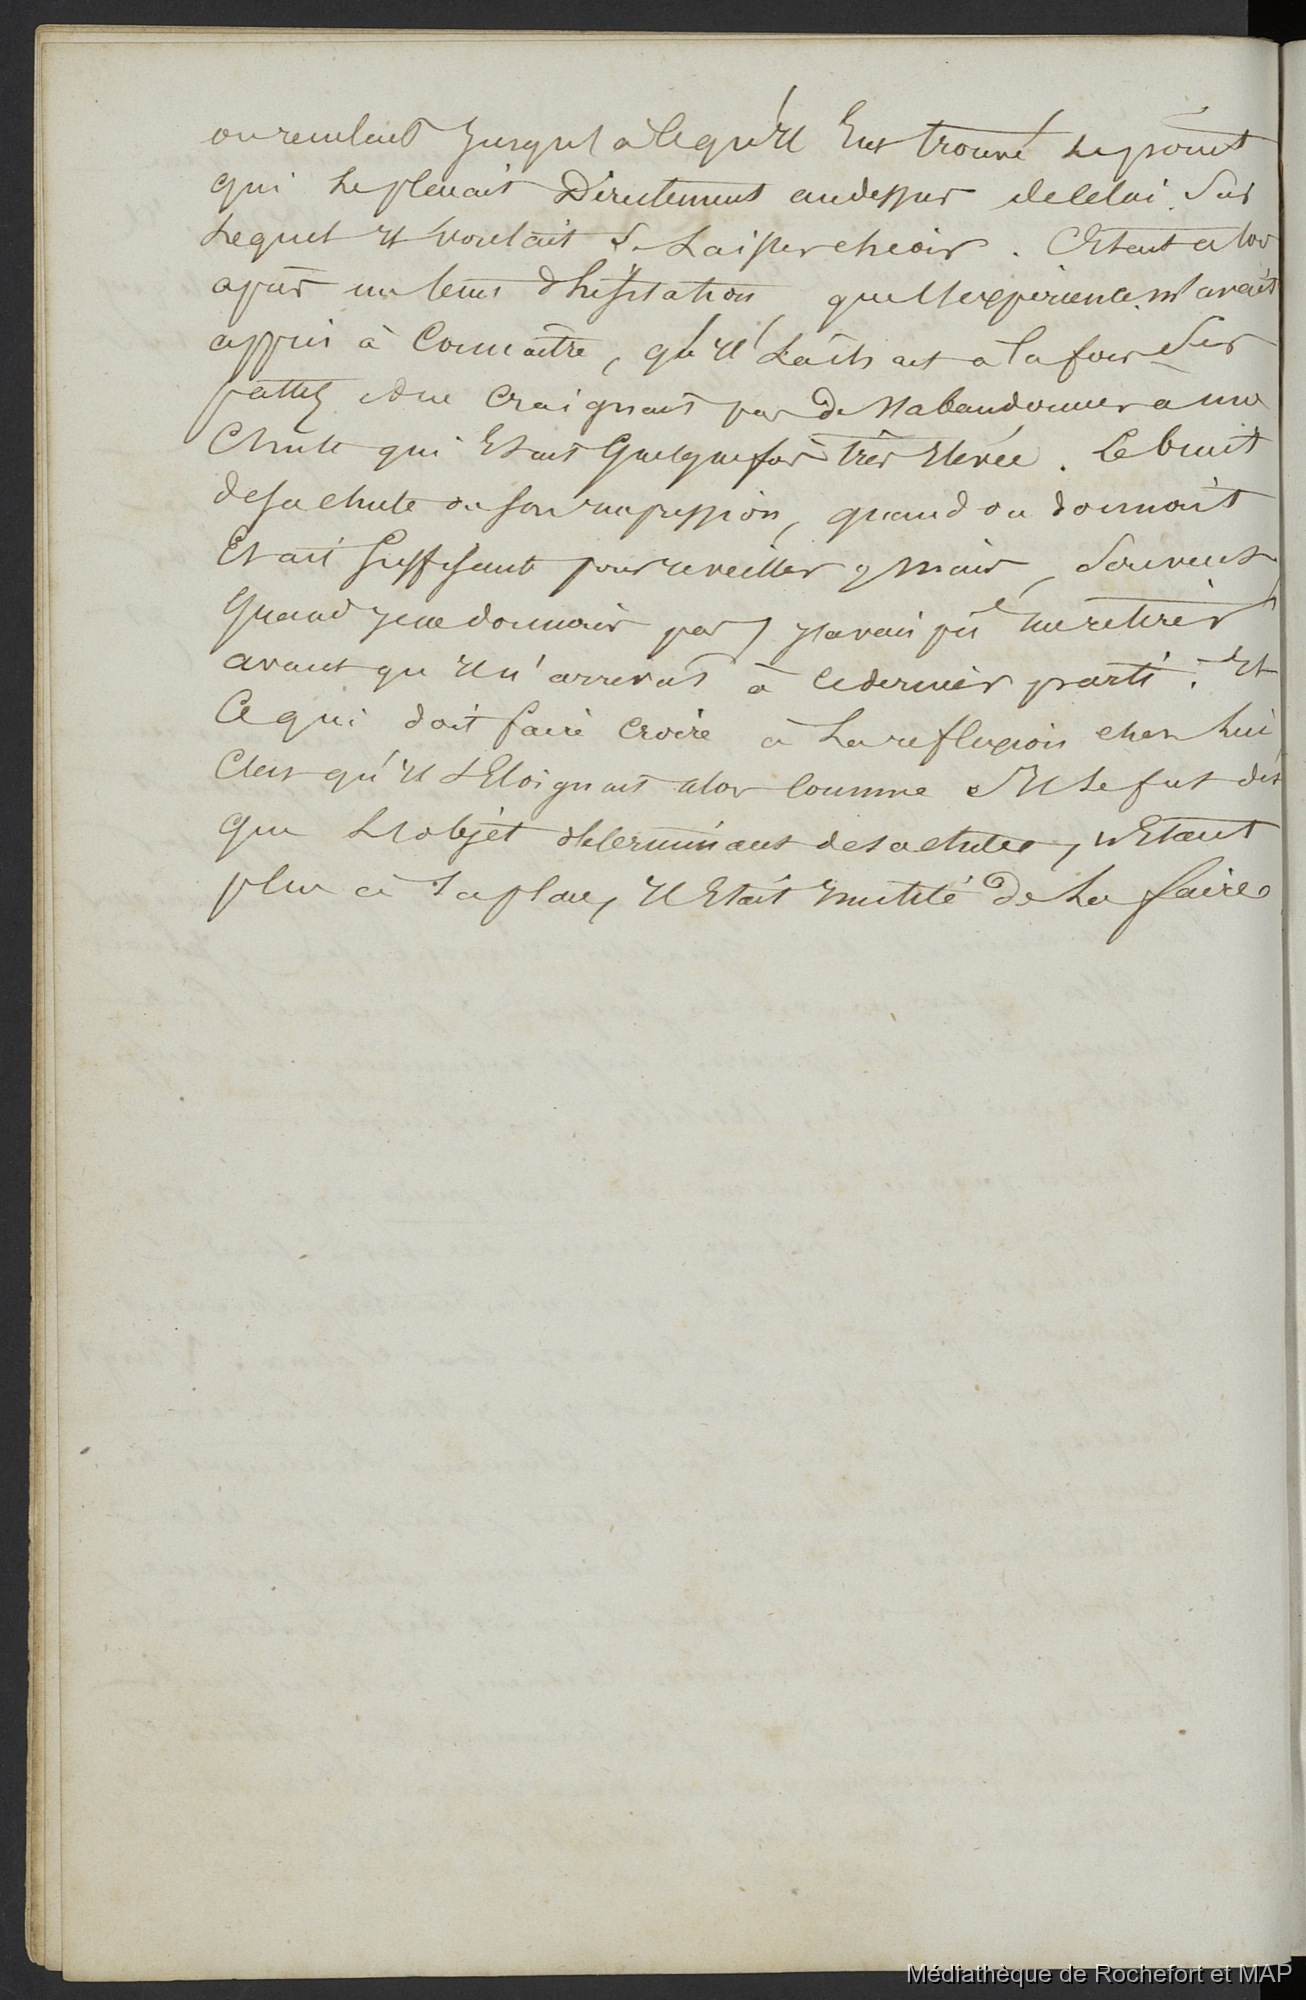 ou reculant Jusqu'à ce qu'Il Eut trouvé Le point
qui Le plaçait Directement au dessus de celui Sur
Lequel Il voulait se Laisser cheoir. C'était alor
après un tems d'hésitation que L'expérience m'avait
appris à Connaitre, qu'Il Lâchait a la fois Ses
pattes et ne Craignait pas de s'abandonner a une
Chute qui Etait Quelquefois très Elevée. Le bruit
de sa chute ou son impression, quand on dormait
Etait suffisant pour reveiller, mais, Souvent
Quand je ne dormais pas, j'avais pu me retirer
avant qu'Il n'arrivat à ce dernier parti. Et
Ce qui doit faire croire à La reflexion chez Lui
C'est qu'Il s'Eloignait alor comme Il Le fut dès
que L'objet determinant de sa chute, n'Etant
plus à sa place, Il Etait Inutile de La faire
Médiathèque de Rochefort et MAP